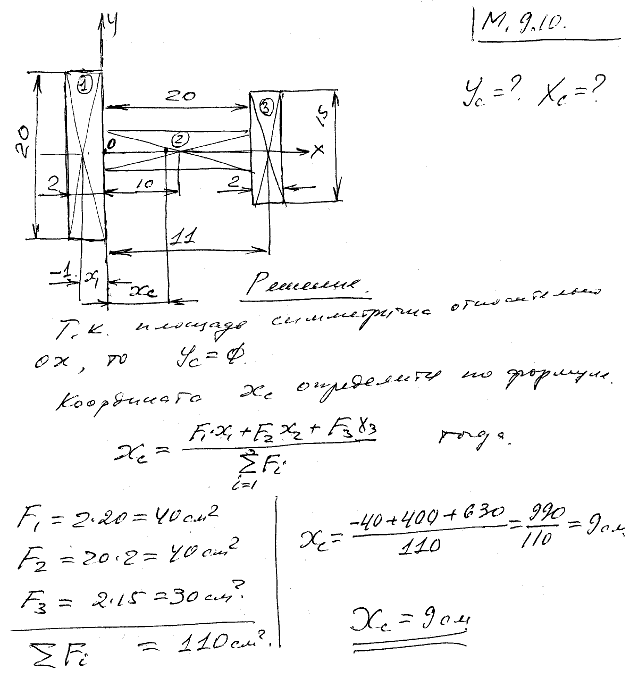 М. 9.10.
Yc = ? Xc = ?
y
①
20
③
15
20
о
②
x
2
10
2
11
-1
x₁
xc
Решение.
Т.к. площадь симметрична относительно
ох, то yc = 0.
Координата xc определится по формуле.
xc = (F₁·x₁ + F₂x₂ + F₃x₃) / ∑Fi i=1 тогда.
F₁ = 2·20 = 40 см²
F₂ = 20·2 = 40 см²
F₃ = 2·15 = 30 см².
∑Fi = 110 см².
xc = (-40+400+630)/110 = 990/110 = 9 см
xc = 9 см